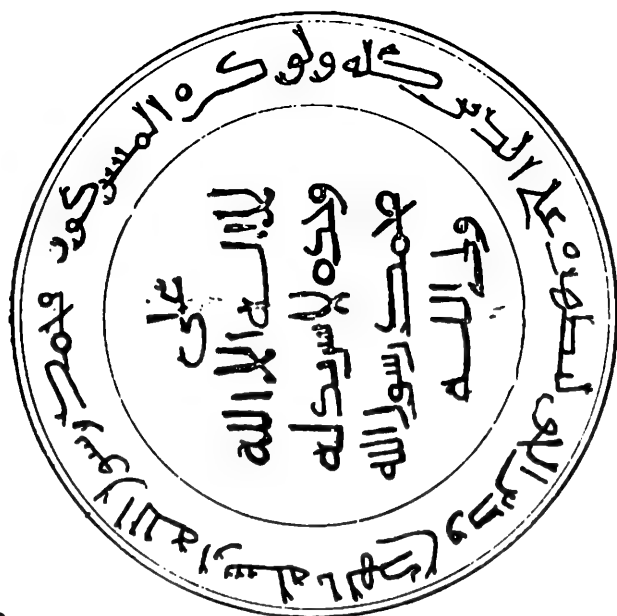 على
لا اله الا الله
وحده لا شريك له
محمد رسول الله
ولى الله
محمد رسول الله ارسله بالهدى ودين الحق ليظهره على الدين كله ولو كره المشركون